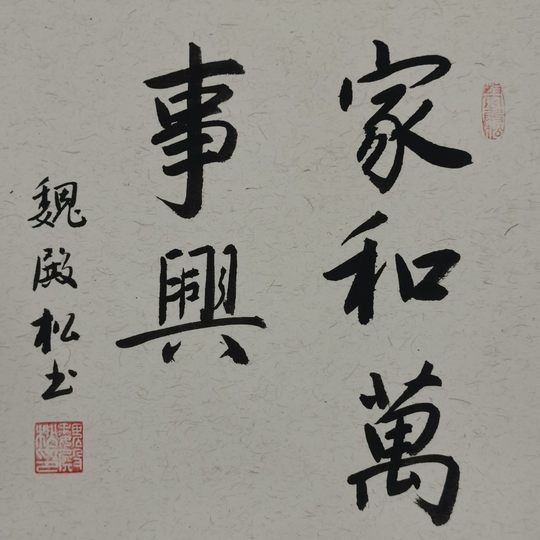 家和萬
事興
魏殿松书